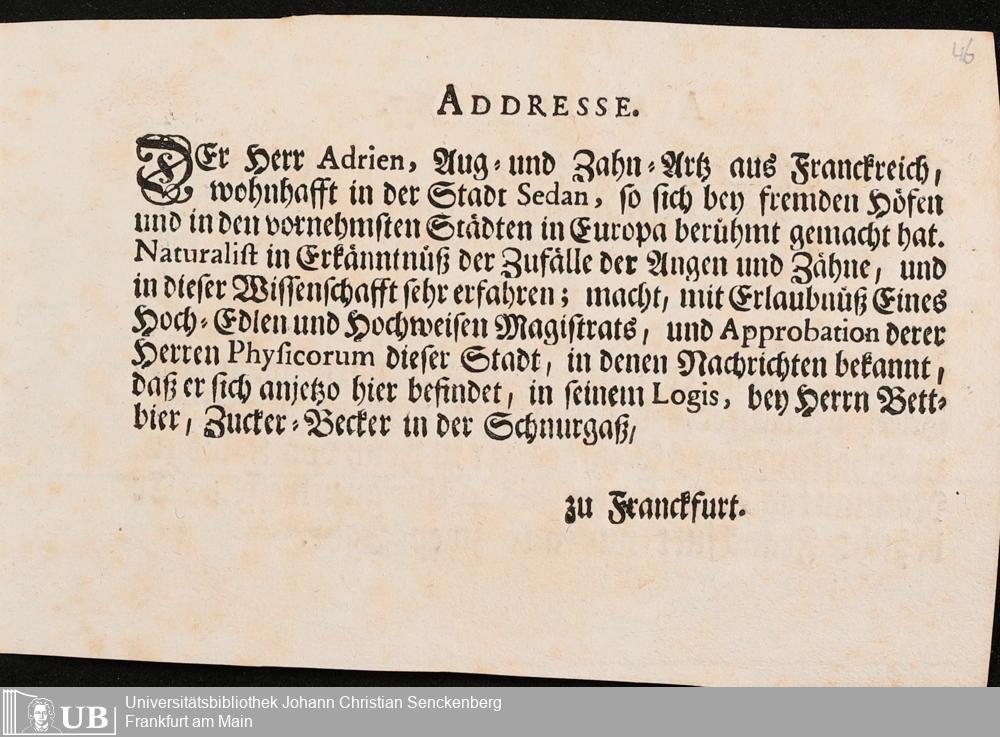 46
ADDRESSE.
DEr Herr Adrien, Aug- und Zahn-Artz aus Franckreich,
wohnhafft in der Stadt Sedan, so sich bey fremden Höfen
und in den vornehmsten Städten in Europa berühmt gemacht hat.
Naturalist in Erkänntnüß der Zufälle der Augen und Zähne, und
in dieser Wissenschafft sehr erfahren; macht, mit Erlaubnüß Eines
Hoch-Edlen und Hochweisen Magistrats, und Approbation derer
Herren Physicorum dieser Stadt, in denen Nachrichten bekannt,
daß er sich anjetzo hier befindet, in seinem Logis, bey Herrn Bett-
bier, Zucker-Becker in der Schnurgaß,
zu Franckfurt.
UB
Universitätsbibliothek Johann Christian Senckenberg
Frankfurt am Main